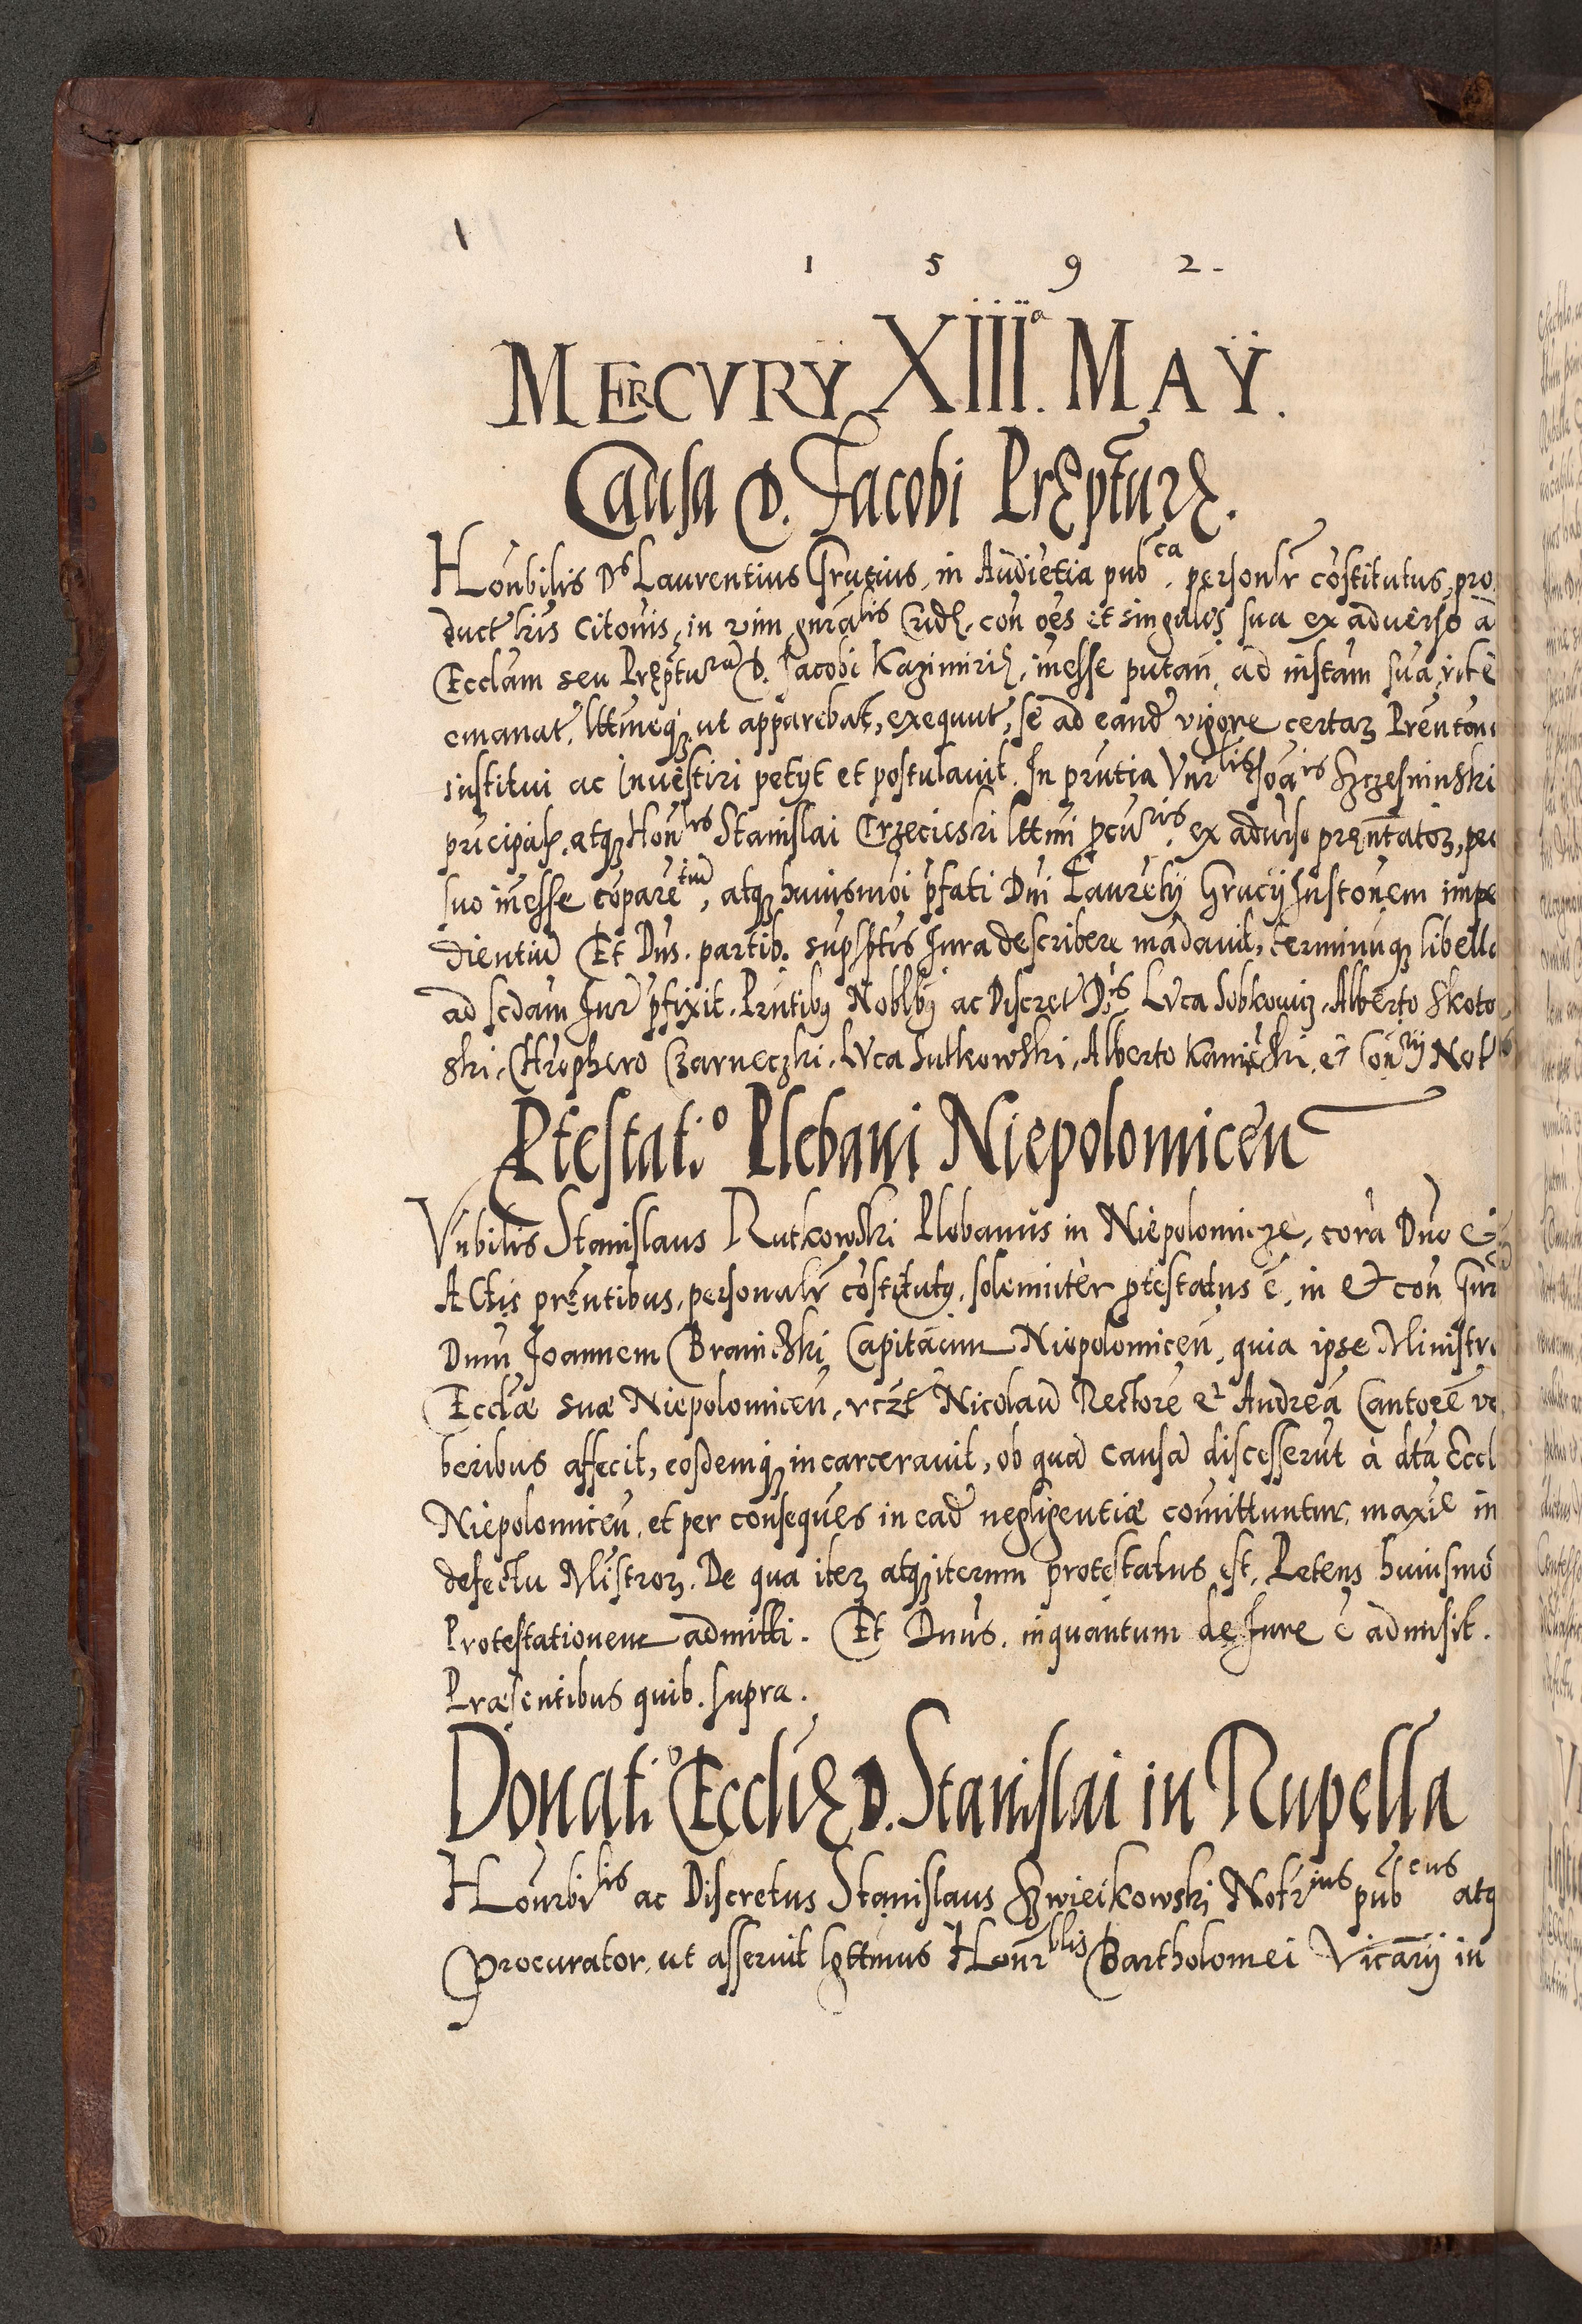 1
1 5 9 2.
MERCVRY XIII.a MAY.
Causa D. Jacobi Pręptūrę.
Honbilis Ds Laurentius Grutius, in Audiētia pubca. personlr cōstitutus, pro
duct lris Citonis, in vim gnralis con oēs et singulos sua ex aduerso ad
Ecclam seu Pręptura D. Jacobi Kazimirię, inesse putan, ad instam sua, ritè
emanat, lttmeqz, ut apparebat, exequut, se ad eand vigore certaz Prēnton
institui ac Inuestiri petyt et postulauit. In prntia Vnrlis Joāis Szczęsninski
principal, atqz Honlis Stanislai Crzecieski lttmi pcuris, ex aduerso pręntatoz, pro
suo inesse cōparētiu, atqz huiusmōi pfati Dni Laurētij Grucij Instonem impe
dientiū Et Dns. partib. supsptis Iura describere mādauit, terminuqz libello
ad scdam Iur pfixit. Prntibus Noblby ac Discret Dīs Lvca Sobkowiz, Alberto Skoto
ski, Chrophero Czarneczki, Lvca Sutkowski, Alberto Kamieński, et Conrij Notis
Ptestatio Plebani Niepolomicen
Vnbilis Stanislaus Rutkowski Plebanus in Niepolomicze, corā Dno
Actis prēntibus, personalr cōstitutus, solemniter ptestatus ē, in et con Gnr
Dnm Joannem Braniczki Capitācum Niepolomicen, quia ipse Ministro
Ecclæ suæ Niepolomicen, vczt Nicolaū Rectorē et Andreā Cantorē ve
beribus affecit, eosdemqz incarcerauit, ob quā causā discesserūt à dta Eccl
Niepolomicen, et per consequēs in eād negligentiæ comittuntur, maxiē in
defectu Mīstroz. De qua iterz atqz iterum protestatus est, Petens huiusmō
Protestationem admitti. Et Dnus. inquantum de Iure ē admisit.
Præsentibus quib. supra.
Donatio Ecclię D. Stanislai in Rupella
Honrbilis ac Discretus Stanislaus Szwieikowski Notrius pubcus atq
Procurator, ut asseruit lgttmus Honrblis Bartholomei Vicārij in